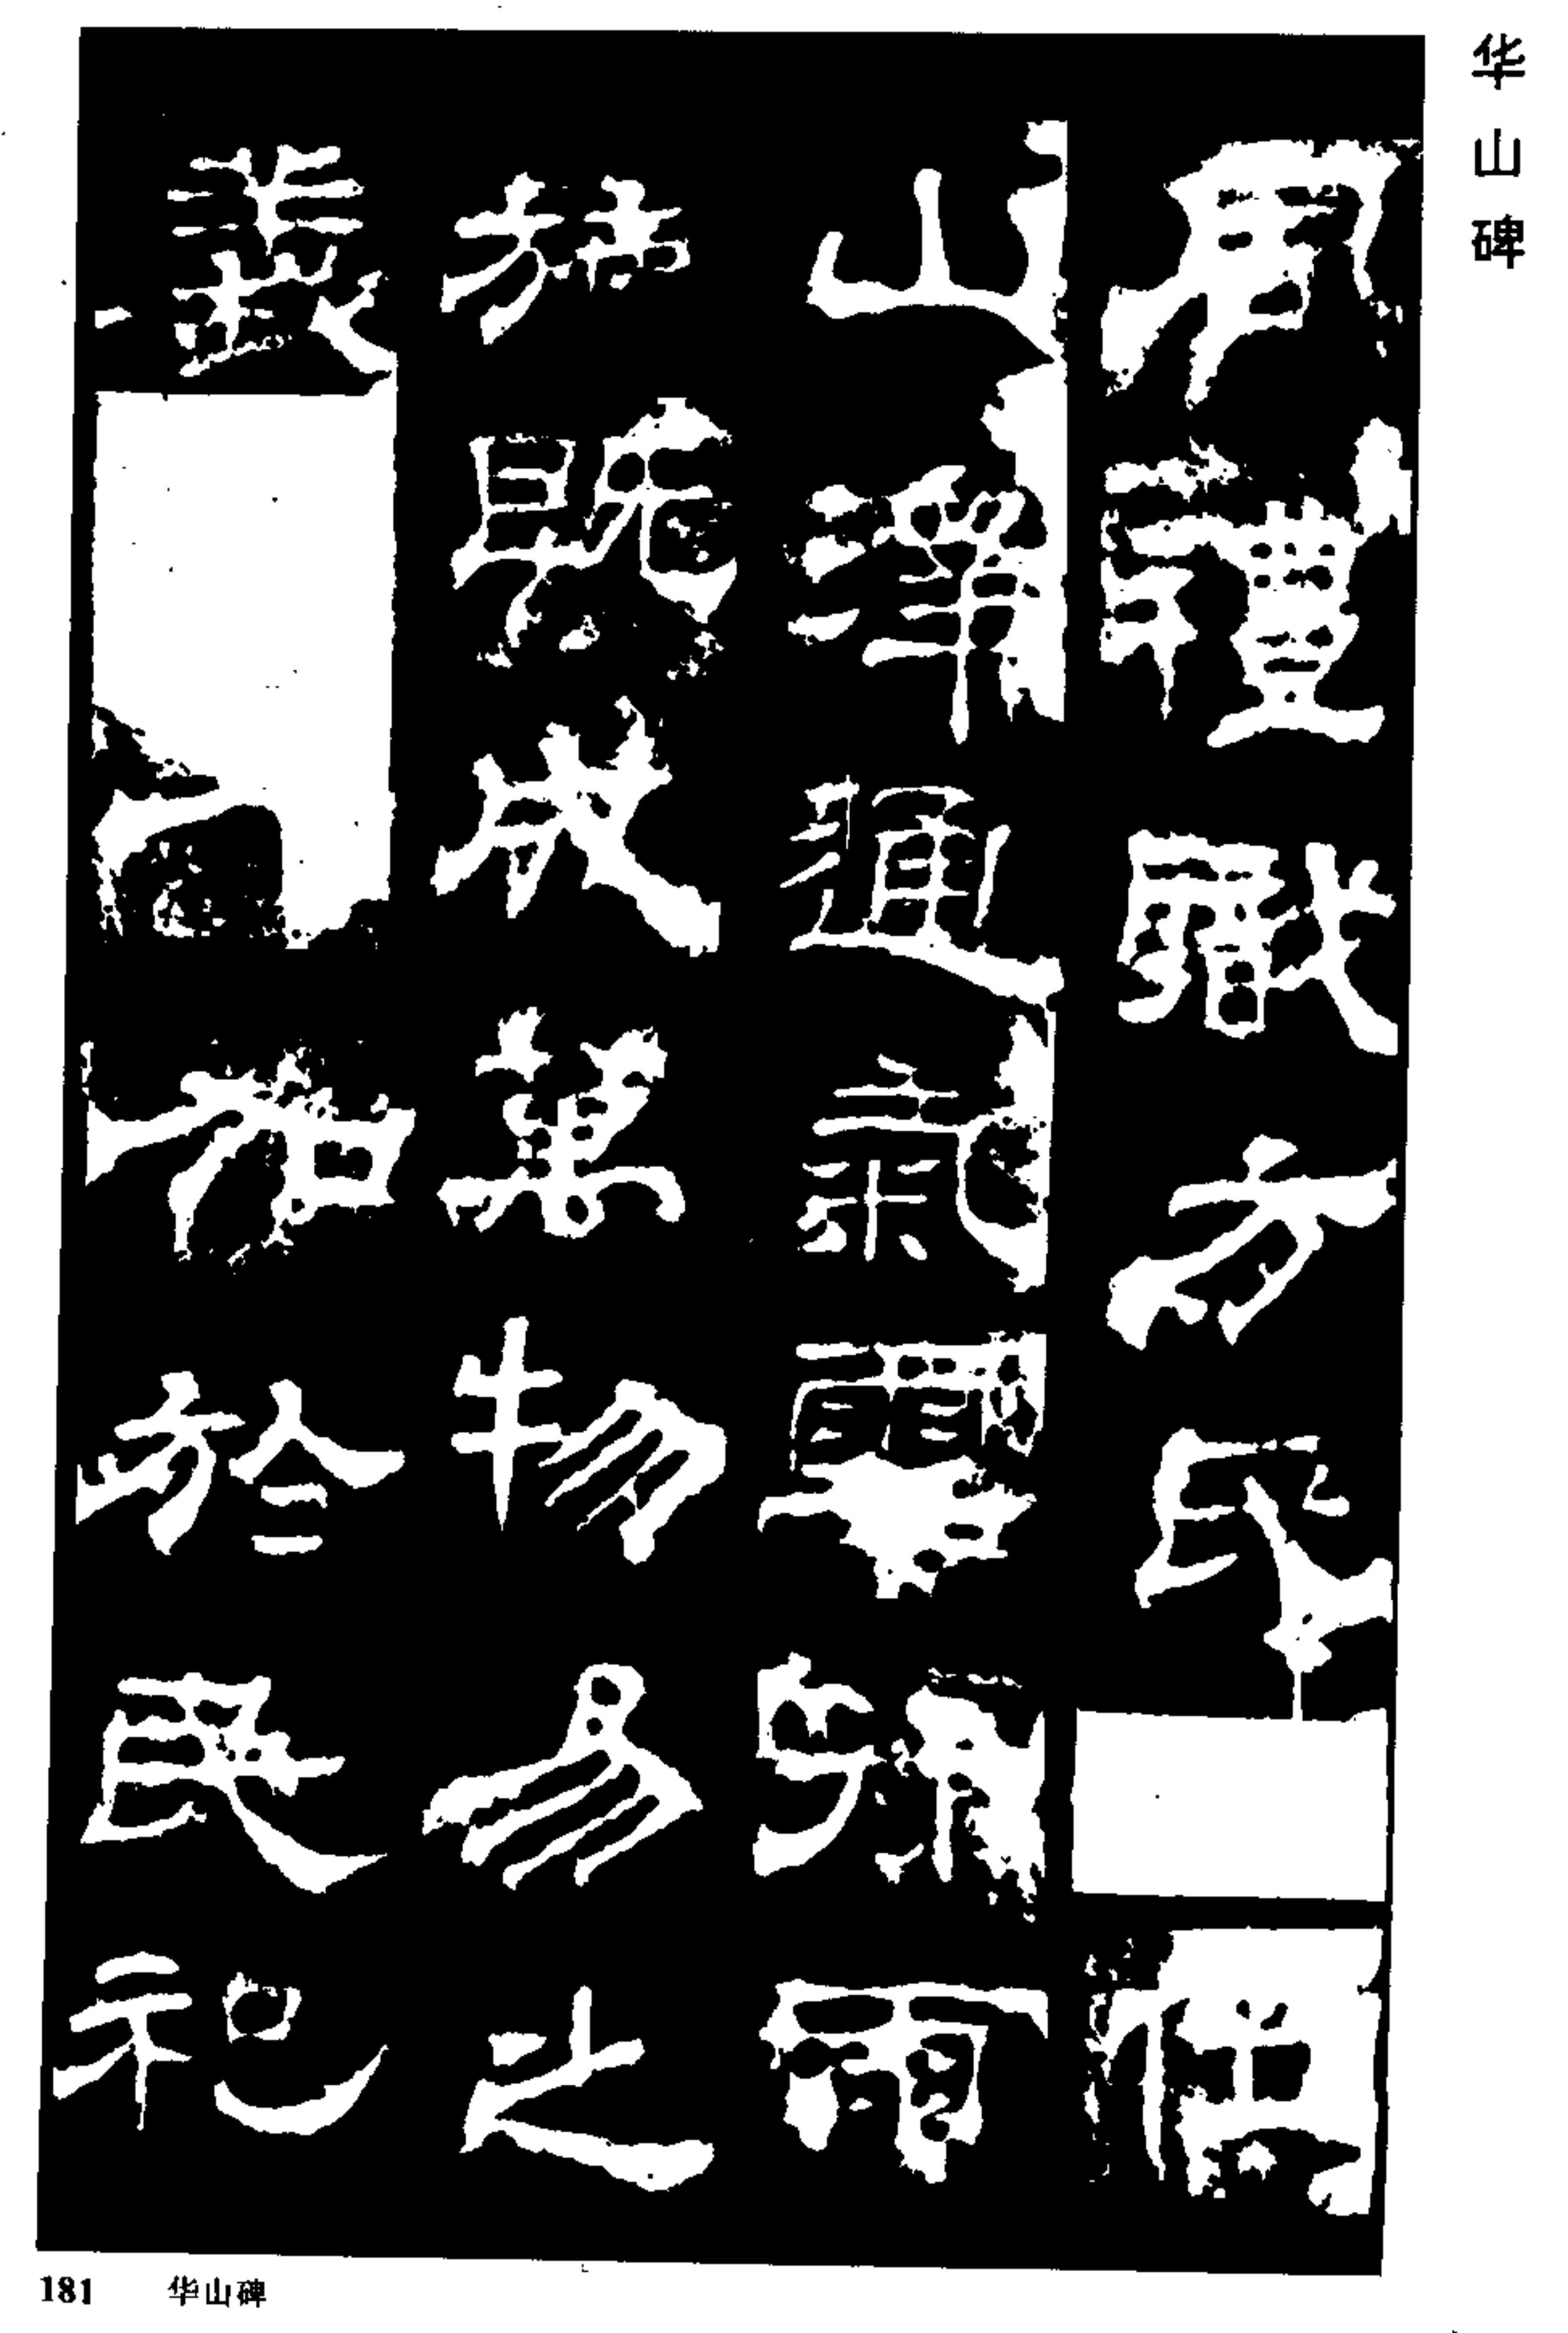 华山碑
周禮職方氏
山澤通氣雲行雨
施既成萬物易之
義 加於民祀
181 华山碑